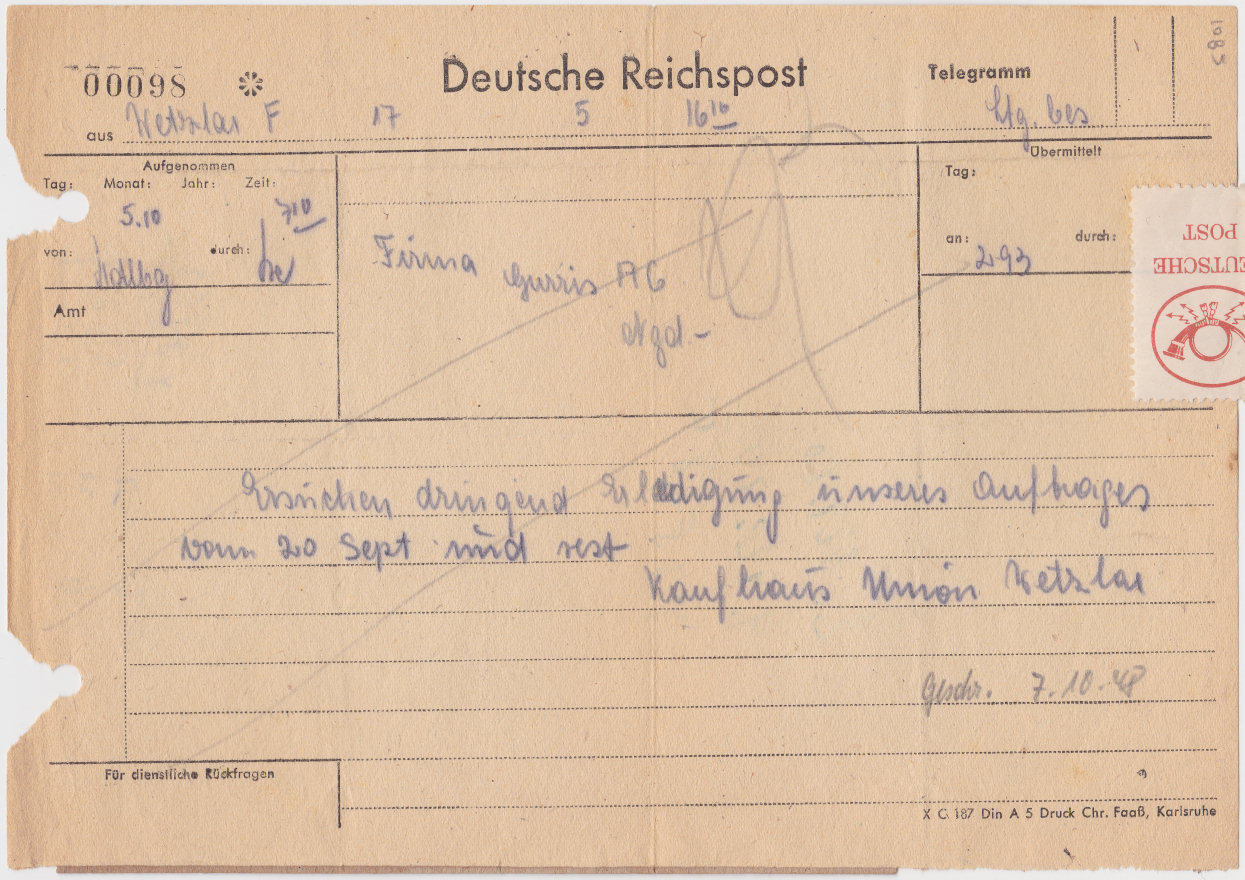 1085
00098 Deutsche Reichspost Telegramm
aus Wetzlar F 17 5 16¹⁰ Lfg. bes
Aufgenommen
Tag: Monat: Jahr: Zeit:
5.10 7¹⁰
von: durch:
Amt
Firma Gurris AG
Übermittelt
Tag:
an: 293 durch:
DEUTSCHE
POST
Ersuchen dringend Erledigung unseres Auftrages
vom 20 Sept und rest
Kaufhaus Union Wetzlar
Geschr. 7.10.48
Für dienstliche Rückfragen
X C 187 Din A 5 Druck Chr. Faaß, Karlsruhe